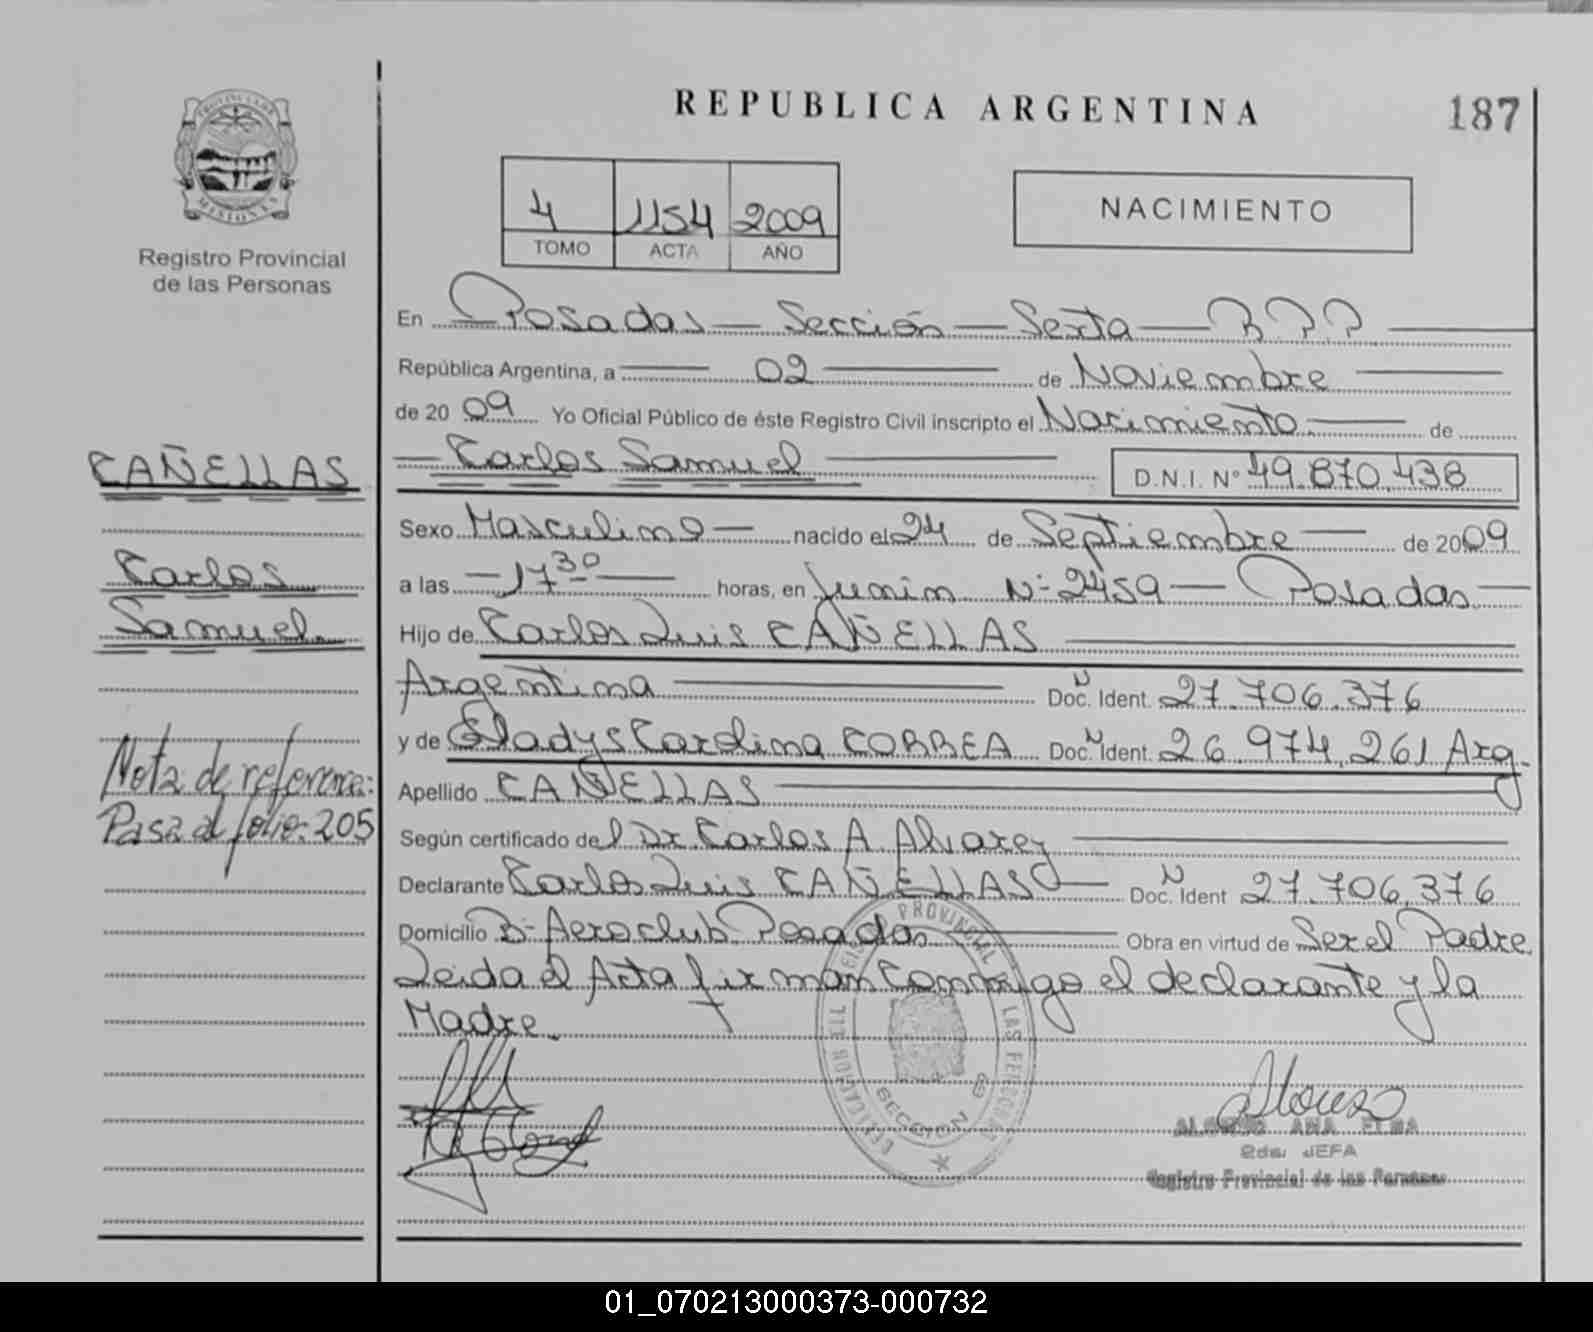 REPUBLICA ARGENTINA
187
PROVINCIA DE
MISIONES
Registro Provincial
de las Personas
4 1154 2009
TOMO ACTA AÑO
NACIMIENTO
En Posadas — Sección — Sexta — R P P
República Argentina, a 02 de Noviembre
de 2009 Yo Oficial Público de éste Registro Civil inscripto el Nacimiento de
Carlos Samuel D.N.I. Nº 49.870.438
Sexo Masculino — nacido el 24 de Septiembre — de 2009
a las — 17 30 — horas, en Junin Nº 2459 — Posadas —
Hijo de Carlos Luis CAÑELLAS
Argentina Doc. Ident. 27.706.376
y de Gladys Carolina CORREA Doc. Ident. 26.974.261 Arg.
Apellido CAÑELLAS
Según certificado del Dr. Carlos A. Alvarez
Declarante Carlos Luis CAÑELLAS Doc. Ident 27.706.376
Domicilio Bº Aeroclub Posadas Obra en virtud de Ser el Padre
Leida el Acta firman conmigo el declarante y la
Madre.
CAÑELLAS
Carlos
Samuel
Nota de referencia:
Pasa al folio: 205
PROVINCIAL
SECCION 6
ALONSO ANA ELBA
2da. JEFA
Registro Provincial de las Personas
01_070213000373-000732